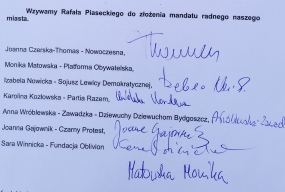 Wzywamy Rafała Piaseckiego do złożenia mandatu radnego naszego
miasta.
Joanna Czerska-Thomas - Nowoczesna,
Monika Matowska - Platforma Obywatelska,
Izabela Nowicka - Sojusz Lewicy Demokratycznej,
Karolina Kozłowska - Partia Razem,
Anna Wróblewska - Zawadzka - Dziewuchy Dziewuchom Bydgoszcz,
Joanna Gajownik - Czarny Protest,
Sara Winnicka - Fundacja Oblivion
Matowska Monika